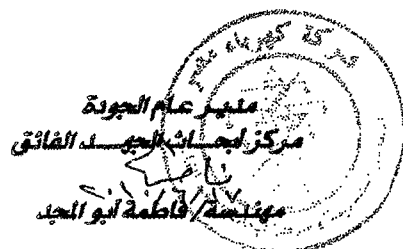 شركة كهرباء مصر
مدير عام الجودة
مركز أبحاث الجهد الفائق
مهندسة/ فاطمة أبو المجد